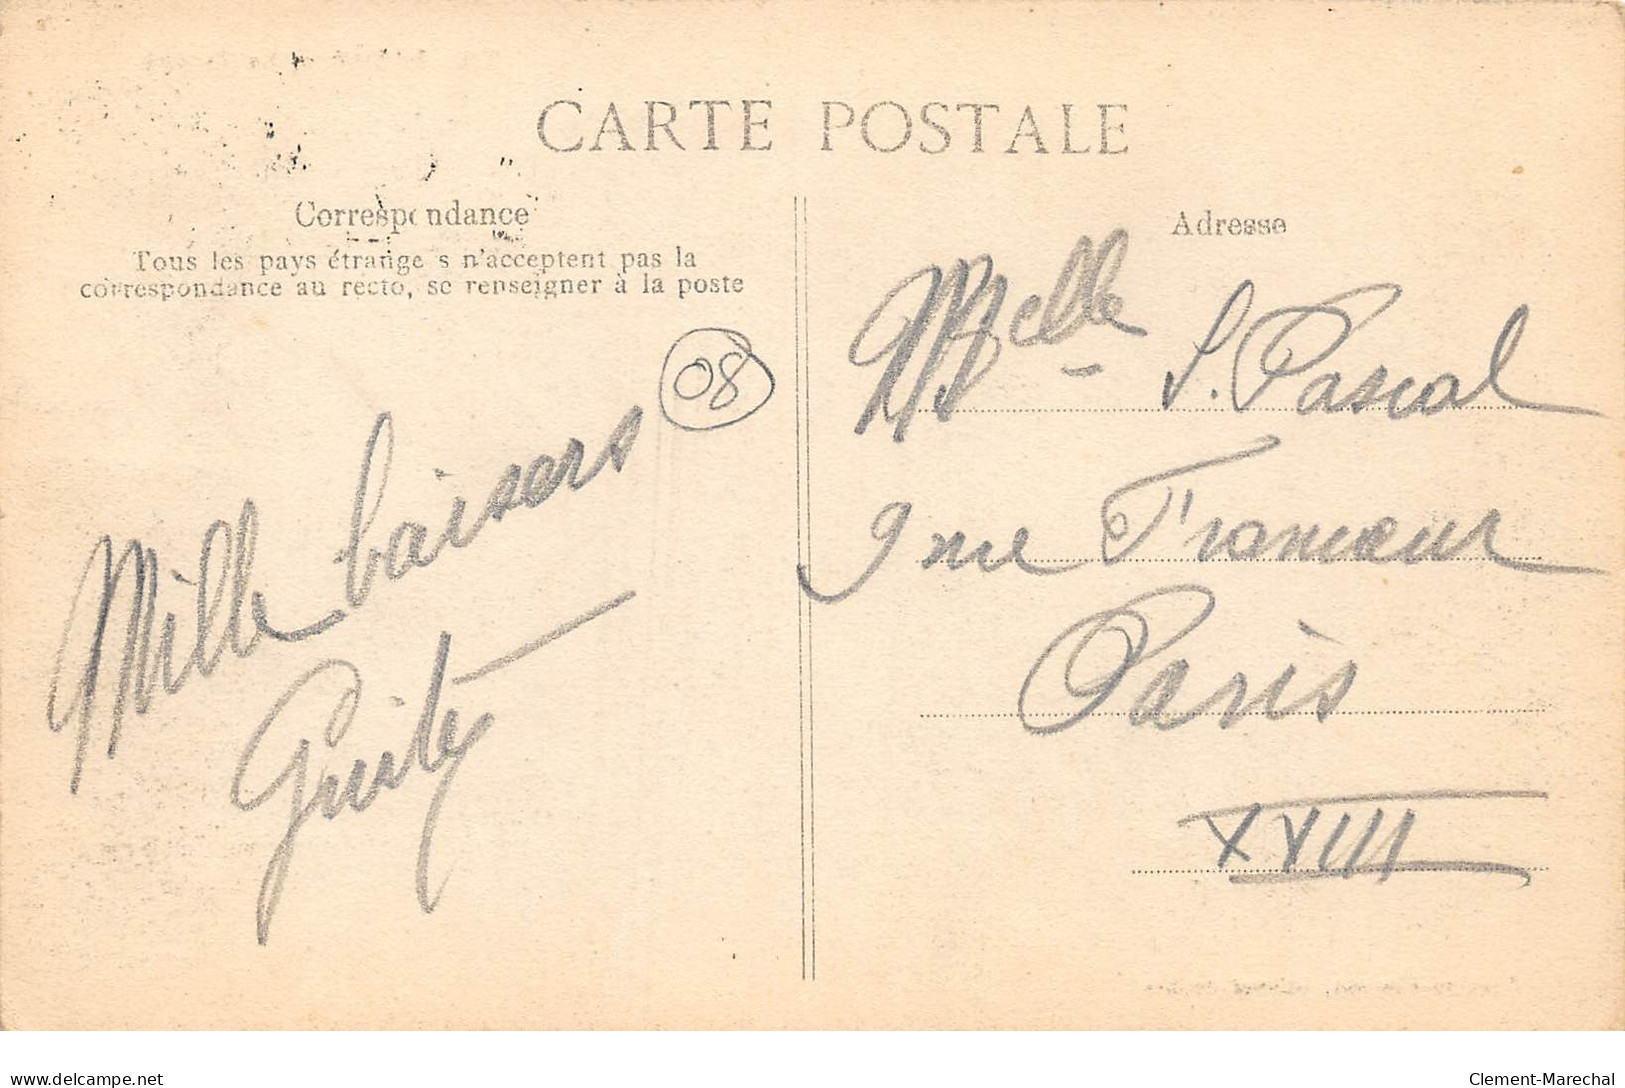 CARTE POSTALE
Correspondance
Tous les pays étrangers n'acceptent pas la
correspondance au recto, se renseigner à la poste
08
Mille baisers
Guity
Adresse
Melle S. Pascal
9 rue Francœur
Paris
XVIII
www.delcampe.net
Clement-Marechal